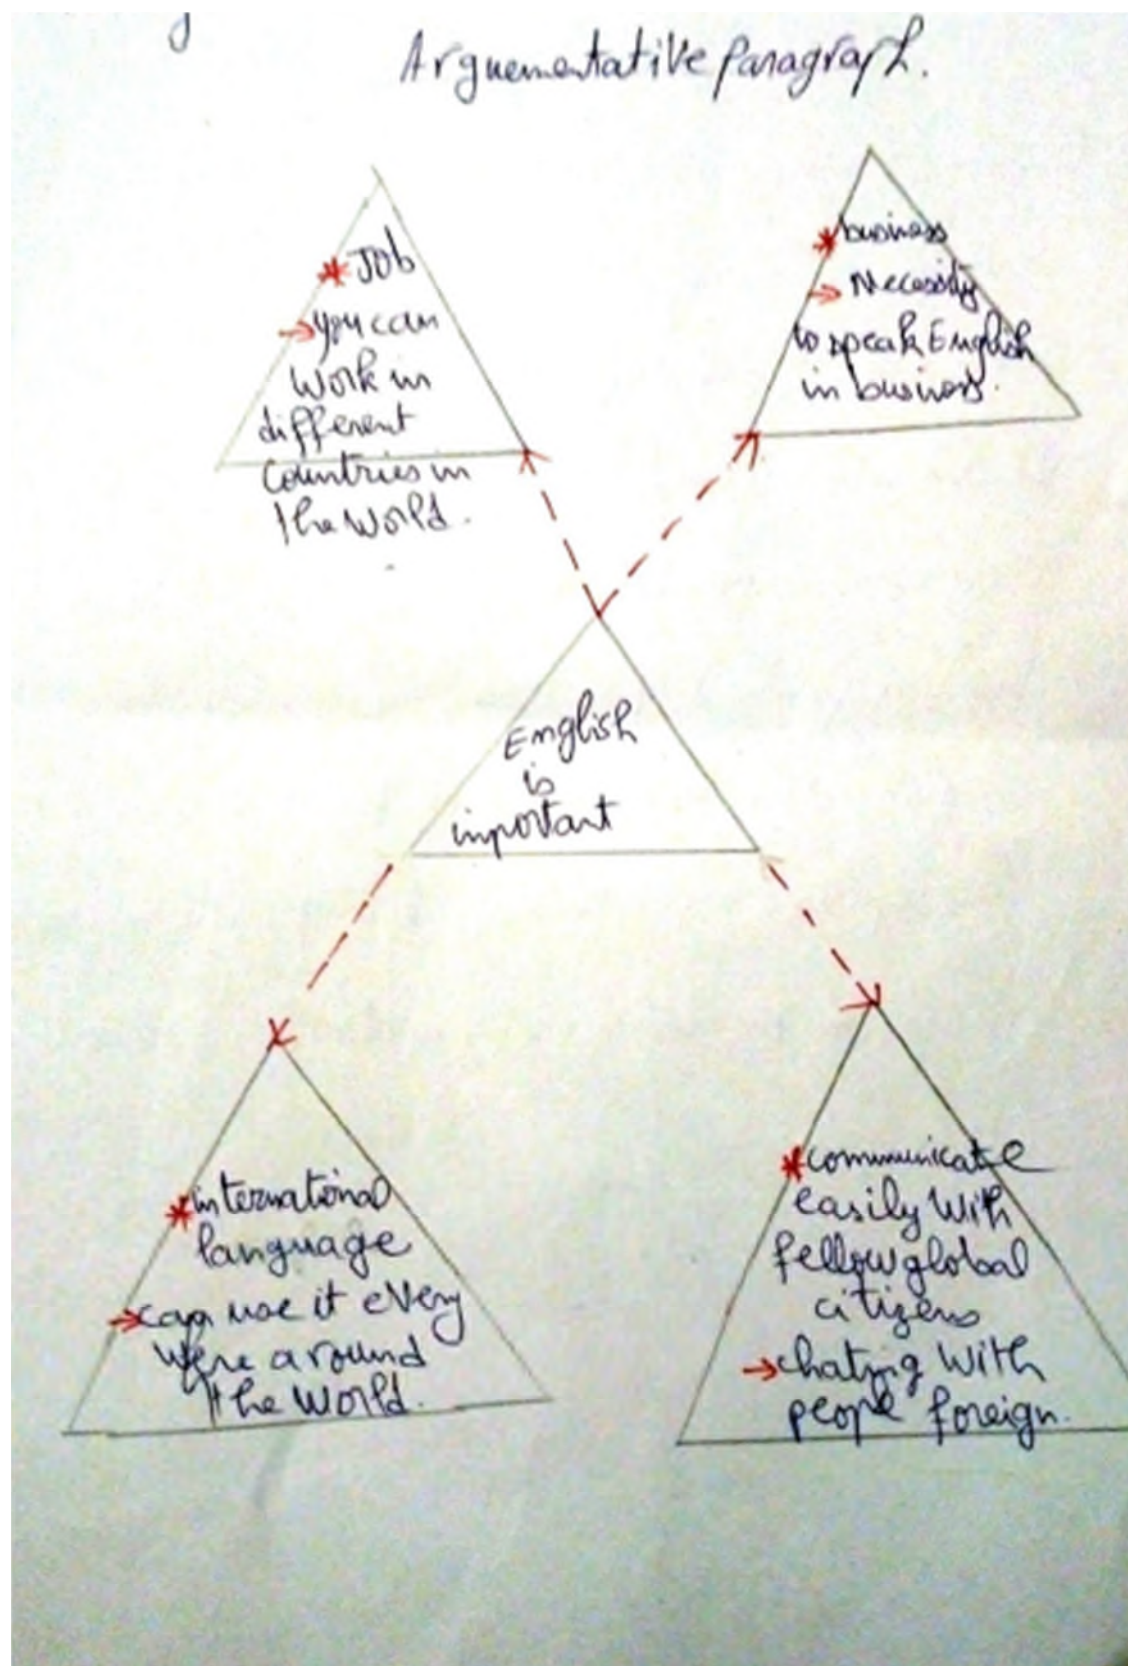 Arguementative paragraph.
* Job
→ you can
work in
different
countries in
the world.
* business
→ Necessity
to speak English
in business.
English
is
important
* international
language
→ can use it every
were around
the world.
* communicate
easily with
fellow global
citizens
→ chating with
people foreign.